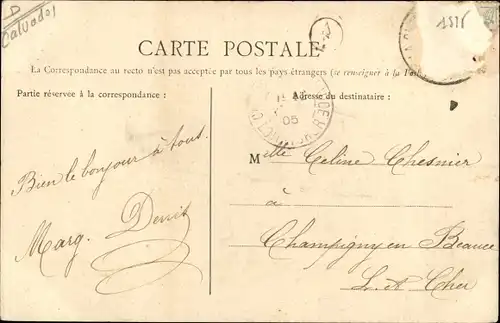 D
Calvados
1525
CARTE POSTALE
La Correspondance au recto n'est pas acceptée par tous les pays étrangers (se renseigner à la Poste)
Partie réservée à la correspondance :
Adresse du destinataire :
05
Bien le bonjour à tous.
Marg.
Melle Celine Chesnier
à
Champigny en Beauce
L. et Cher